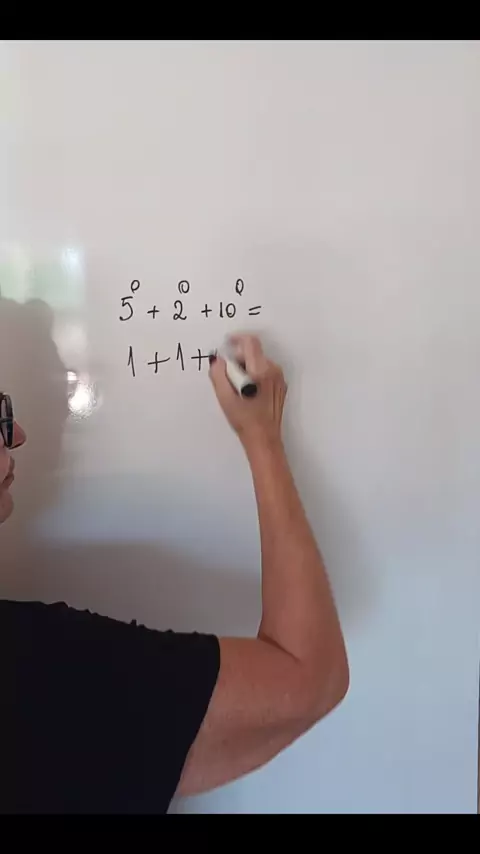 5⁰ + 2⁰ + 10⁰ =
1 + 1 +